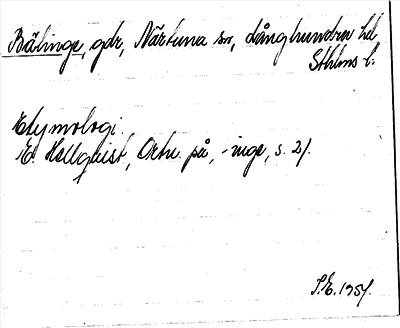 Bälinge, gdr, Närtuna sn, Långhundra hd
Sthlms l.
Etymologi.
E. Hellquist, Ortn. på -inge, s. 21.
S.E. 1951.